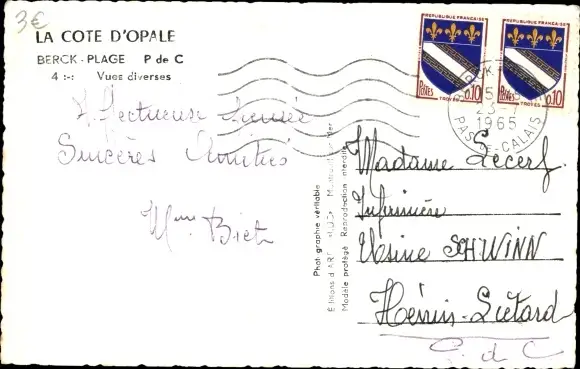 3€
LA COTE D'OPALE
BERCK - PLAGE P de C
4 :-: Vues diverses
Affectueuse Pensée
Sincères Amitiés
Mme Biet
REPUBLIQUE FRANÇAISE
POSTES 0,10
TROYES
REPUBLIQUE FRANÇAISE
POSTES 0,10
TROYES
BERCK-P
15
23-7
1965
PAS-DE-CALAIS
Madame Lecerf
Infirmière
Usine SCHWINN
Hénin-Liétard
P. de C
Photographie véritable
Editions d'ART
Modèle protégé Reproduction interdite